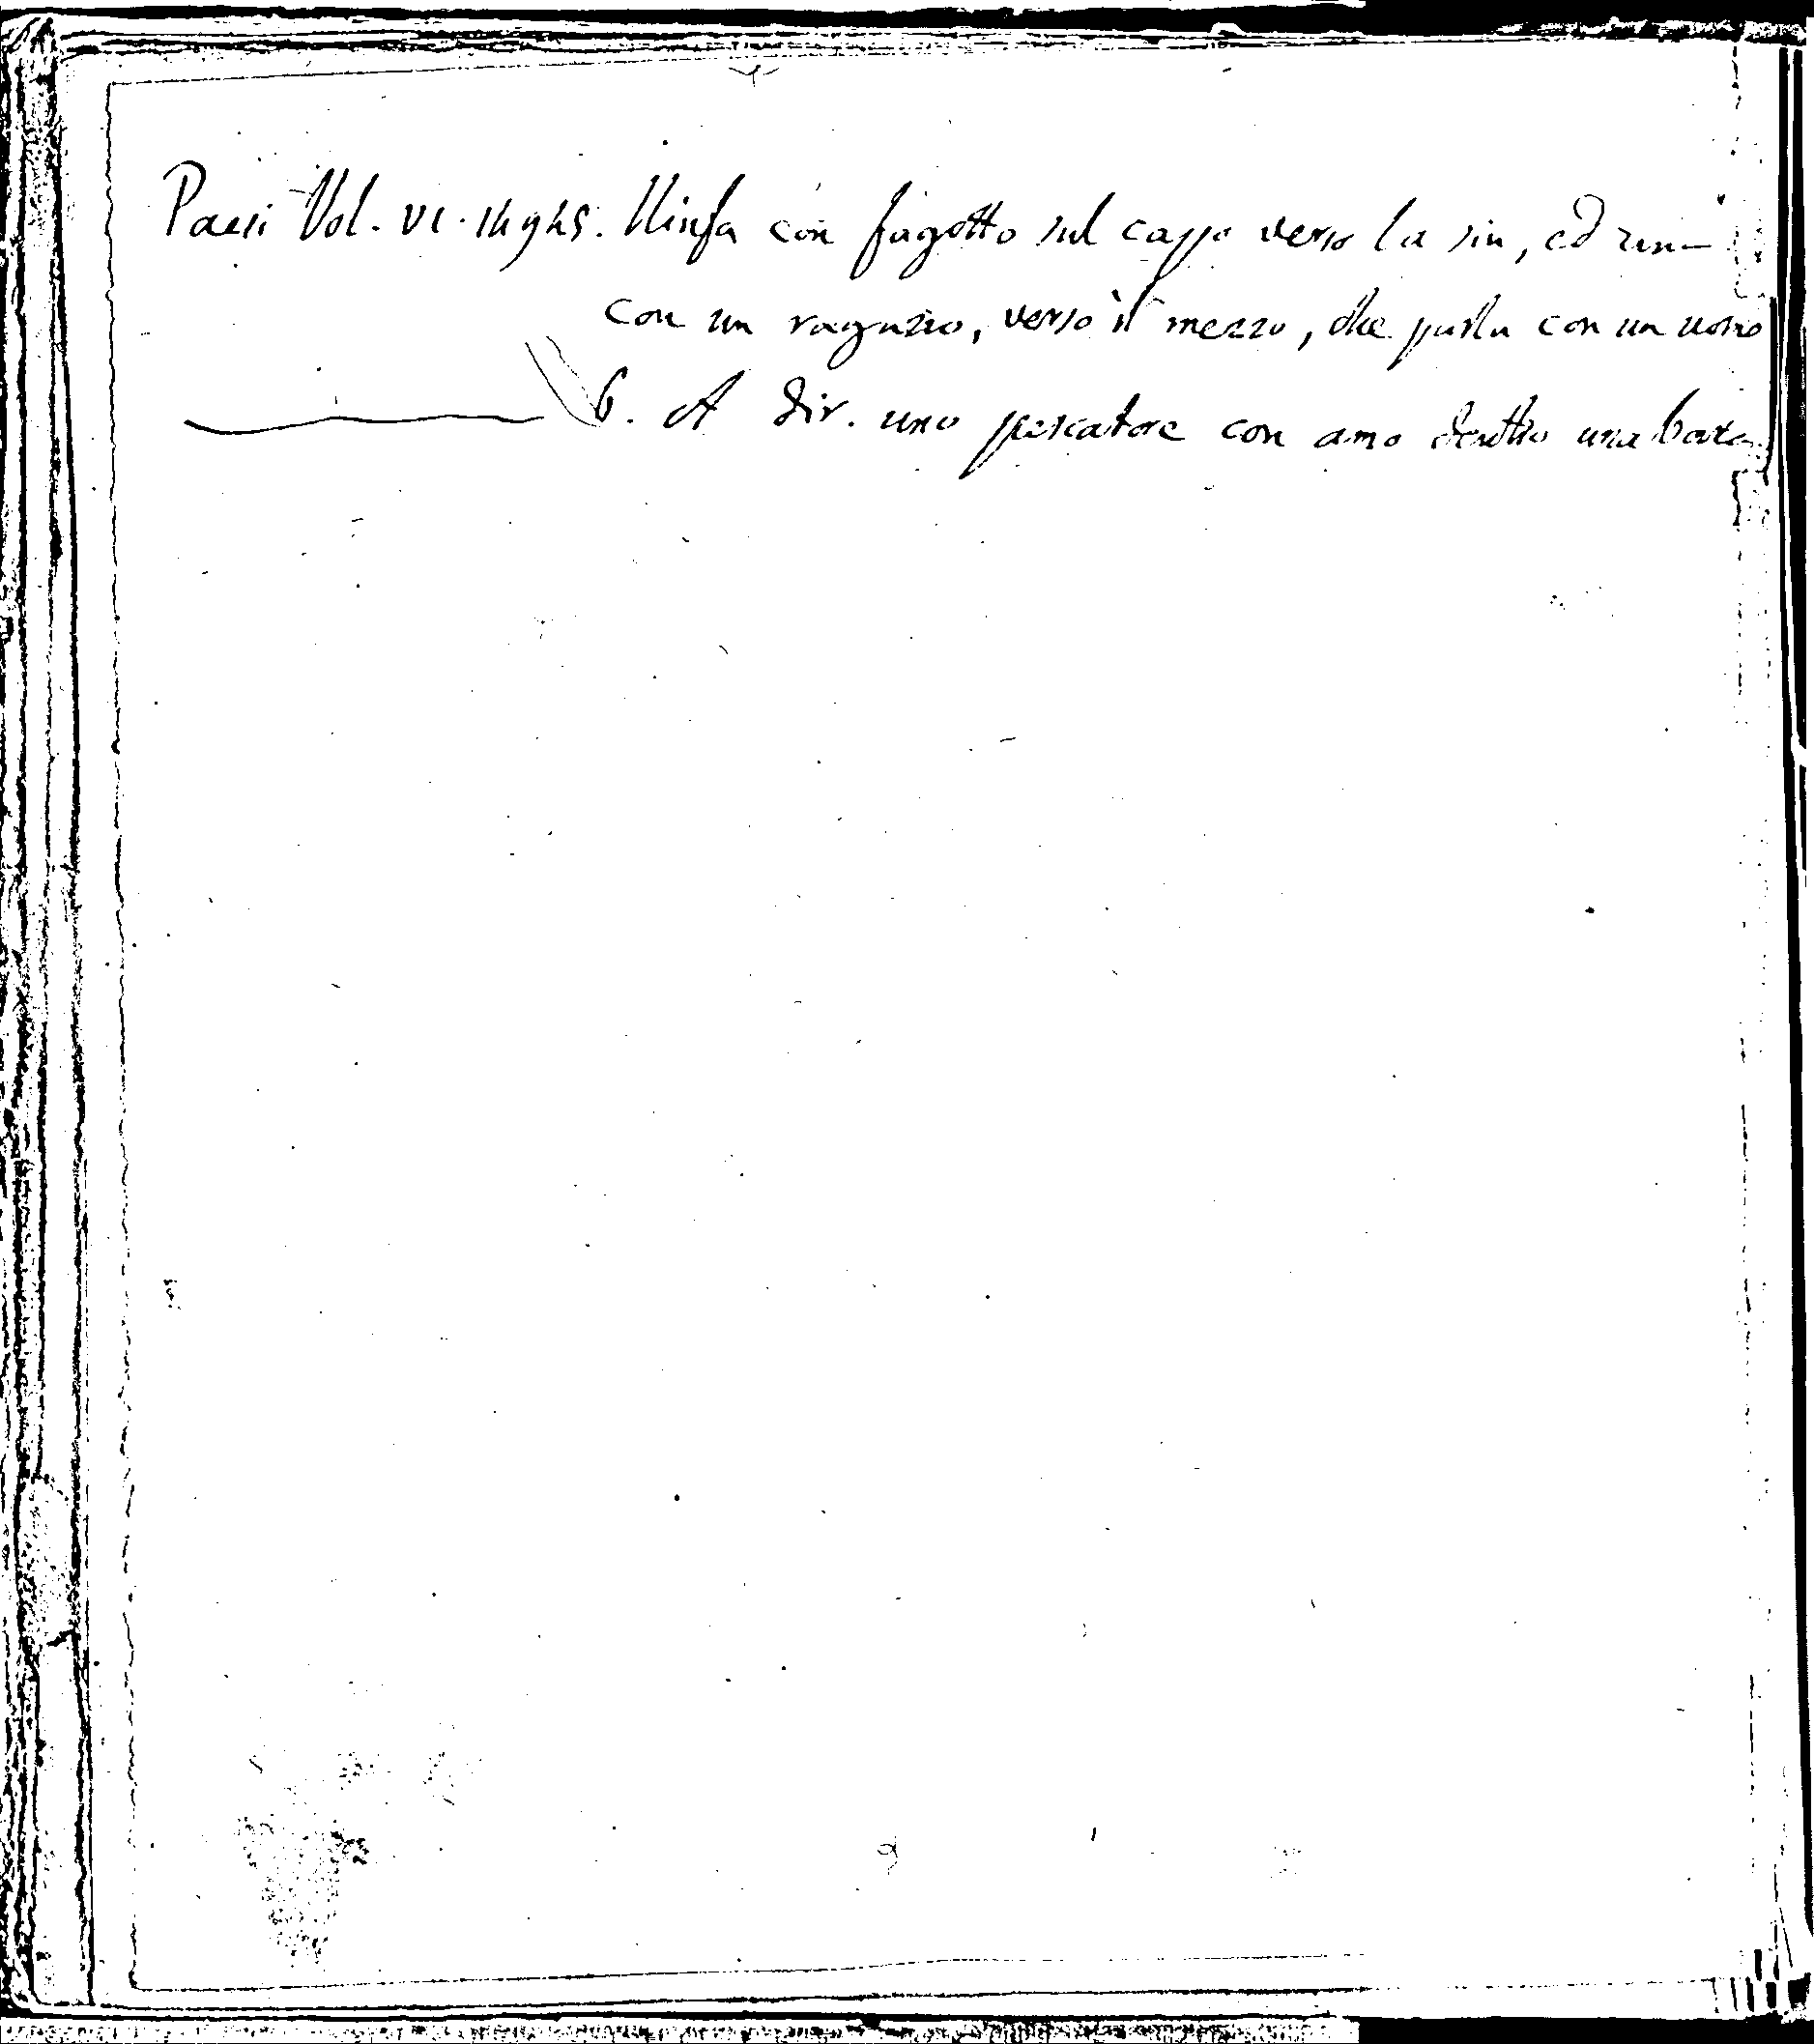 Paesi Vol. VI. Ninfa con fagotto sul cappo verso la sin, ed un
con un ragazzo, verso il mezzo, che parla con un uomo
6. A dir. uno pescatore con amo dentro una barca